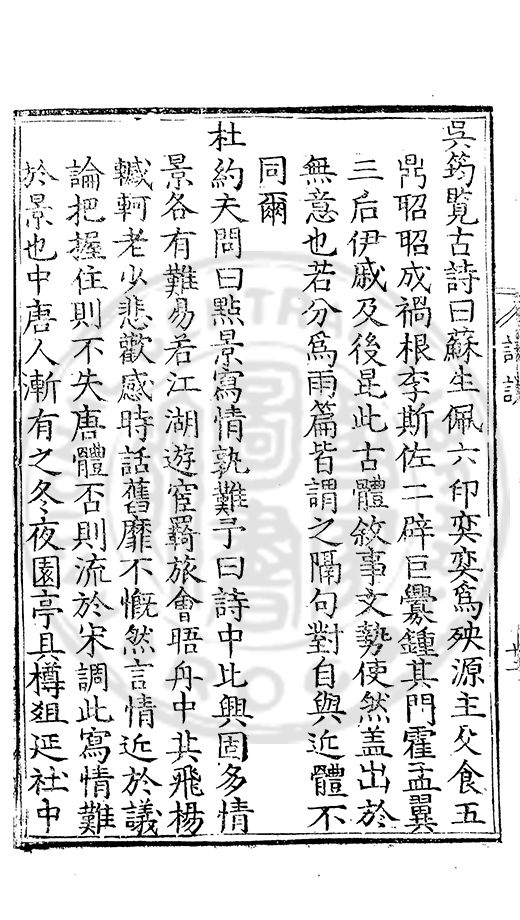 吳筠覽古詩曰蘇生佩六印奕奕為殃源主父食五
鼎昭昭成禍根李斯佐二辟巨釁鍾其門霍孟翼
三后伊戚及後昆此古體敘事文勢使然蓋出於
無意也若分為兩篇皆謂之隔句對自與近體不
同爾
杜約夫問曰點景寫情孰難予曰詩中比興固多情
景各有難易若江湖遊宦羈旅會晤舟中其飛楊
轗軻老少悲歡感時話舊靡不慨然言情近於議
論把握住則不失唐體否則流於宋調此寫情難
於景也中唐人漸有之冬夜園亭具樽俎延社中